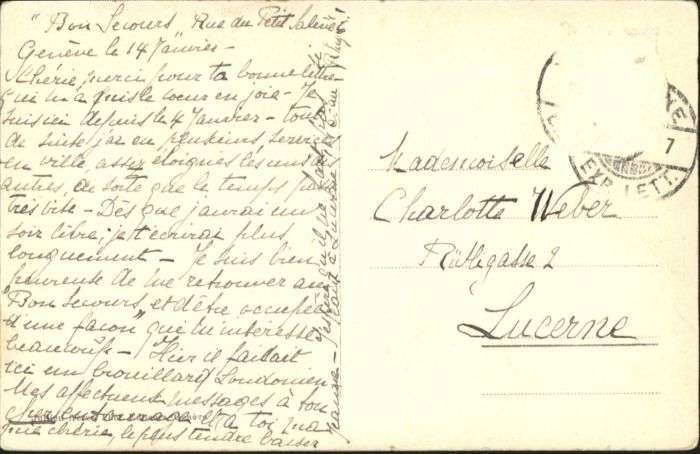 "Bon Secours Rue du Petit Salève!
Genève le 14 Janvier –
Chérie, merci pour ta bonne lettre
qui m'a mis le coeur en joie – Je
suis ici depuis le 4 Janvier – tout
de suite j'ai eu plusieurs services
en ville, assez éloignés les uns des
autres, de sorte que le temps passe
très vite – Dès que j'aurai un
soir libre, je t'écrirai plus
longuement – Je suis bien
heureuse de me retrouver au
"Bon Secours, et d'être occupée
d'une façon" qui m'intéresse
beaucoup – Hier il faisait
ici un brouillard Londonien
Mes affectueux messages à ton
cher entourage et à toi ma
mie chérie, le plus tendre baiser
J'espère qu'il ne
à Lucerne
Mademoiselle
Charlotte Weber
Rütligasse 2
Lucerne
7
EXP. LETT.